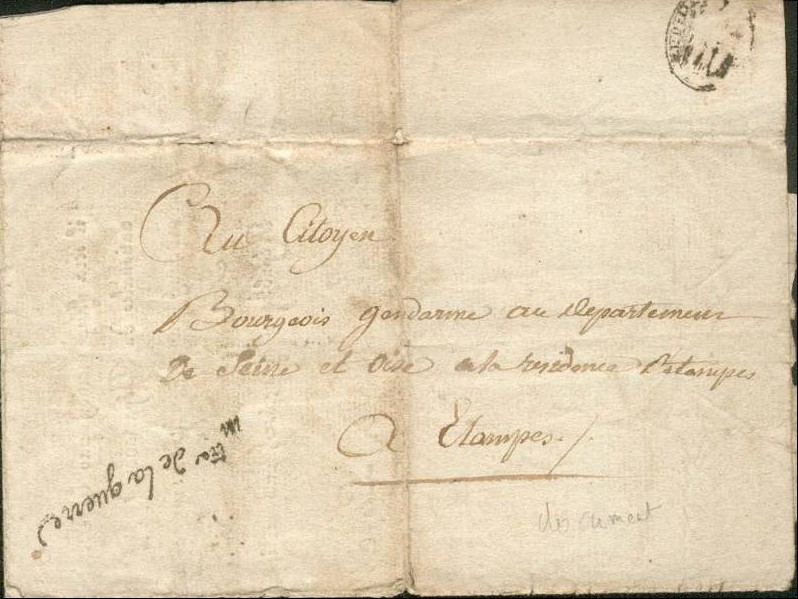 Au Citoyen
Bourgeois gendarme au departement
De Seine et Oise a la residence D'etampes
A Etampes./.
m tre de la guerre